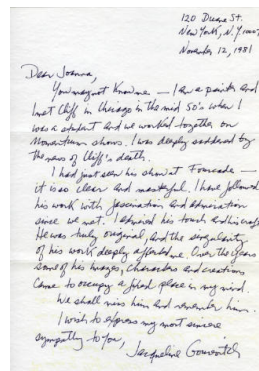 120 Duane St.
New York, N.Y. 10007
November 12, 1981
Dear Joanna,
You may not know me — I am a painter and
I met Cliff in Chicago in the mid 50's when I
was a student and we worked together on
Momentum shows. I was deeply saddened by
the news of Cliff's death.
I had just seen his show at Fourcade —
it is so clear and masterful. I have followed
his work with fascination and admiration
since we met. I admired his touch and his craft.
He was truly original, and the singularity
of his work deeply affected me. Over the years
some of his images, characters and creations
came to occupy a fixed place in my mind.
We shall miss him and remember him.
I wish to express my most sincere
sympathy to you,
Jacqueline Gourevitch